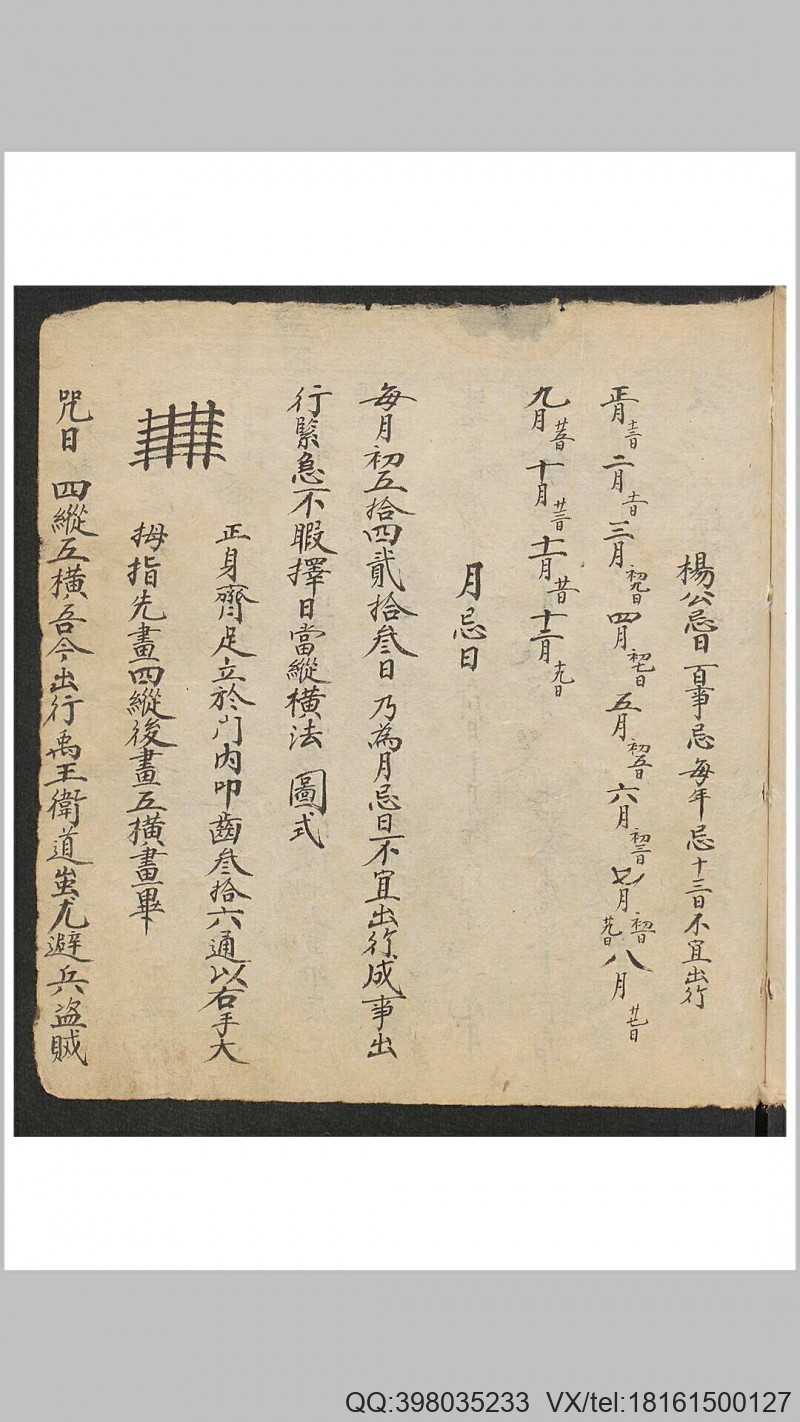 楊公忌日百事忌每年忌十三日不宜出行
正月十三日二月十一日三月初九日四月初七日五月初五日六月初三日七月初一日廿九日八月廿七日
九月廿五日十月廿三日十一月廿一日十二月十九日
月忌日
每月初五拾四貳拾叁日乃為月忌日不宜出行成事出
行緊急不暇擇日當縱橫法 圖式
正身齊足立於門內叩齒叁拾六通以右手大
拇指先畫四縱後畫五橫畫畢
咒曰 四縱五橫吾今出行禹王衛道蚩尤避兵盜賊
QQ:398035233 VX/tel:18161500127